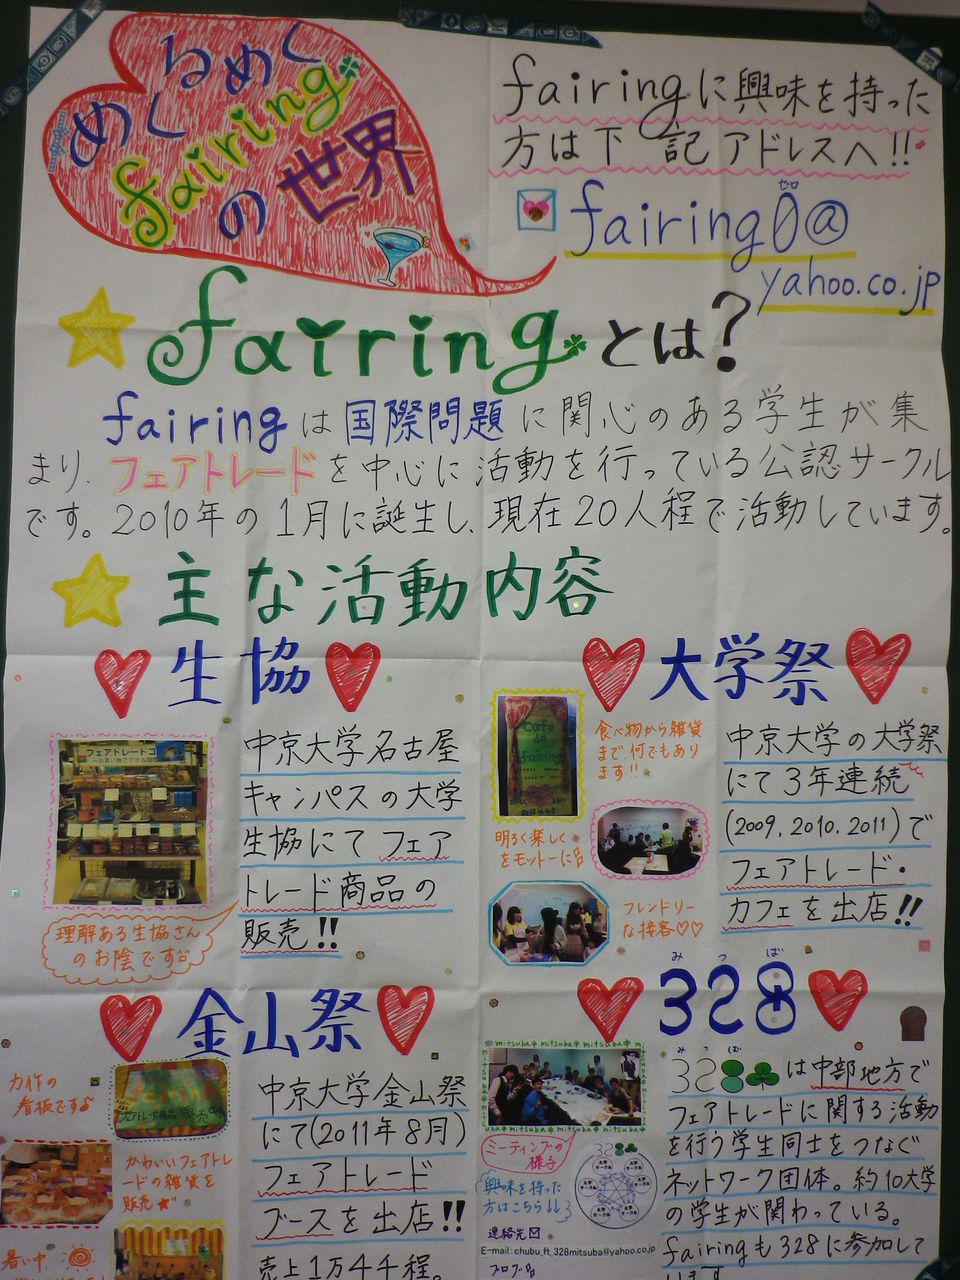 めくるめく
fairing
の世界
fairingに興味を持った
方は下記アドレスへ!!
ゼロ
fairing0@
yahoo.co.jp
fairingとは?
fairingは国際問題に関心のある学生が集
まり、フェアトレードを中心に活動を行っている公認サークル
です。2010年の1月に誕生し、現在20人程で活動しています。
主な活動内容
生協
フェアトレードコ
中京大学名古屋
キャンパスの大学
生協にてフェア
トレード商品の
販売!!
理解ある生協さん
のお陰です
大学祭
Cafe
de
fairing
食べ物から雑貨
まで、何でもあり
ます!!
明るく楽しく
をモットーに
フレンドリー
な接客♡♡
中京大学の大学祭
にて3年連続
(2009, 2010, 2011)で
フェアトレード・
カフェを出店!!
金山祭
力作の
看板です♪
かわいいフェアトレ
ードの雑貨を
販売★
暑い中
中京大学金山祭
にて(2011年8月)
フェアトレード
ブースを出店!!
売上1万4千程。
みつば
328
mitsuba mitsuba mitsuba
ミーティングの
様子
328
大学サークル
興味を持った
方はこちら↓↓
連絡先
E-mail: chubu_ft_328mitsuba@yahoo.co.jp
ブログ
みつば
328は中部地方で
フェアトレードに関する活動
を行う学生同士をつなぐ
ネットワーク団体。約10大学
の学生が関わっている。
fairingも328に参加して
います